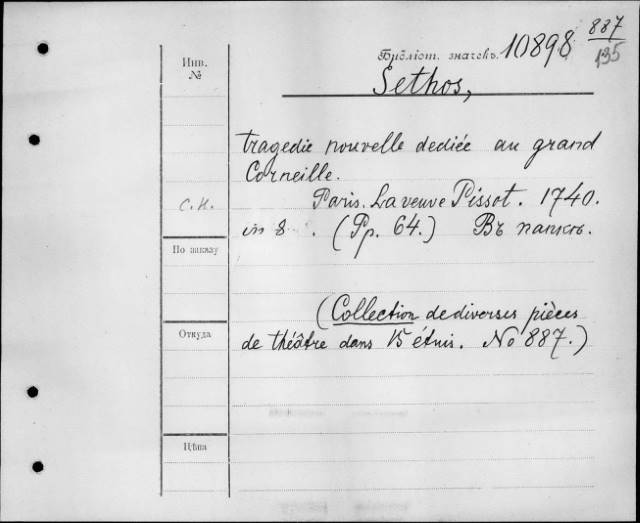 887
135
Библіот. значекъ. 10898
Sethos,
Инв.
№
tragedie nouvelle dediée au grand
Corneille.
С. К.
Paris. La veuve Pissot. 1740.
in 8. (Pp. 64.) Въ папкѣ.
По заказу
(Collection de diverses pièces
Откуда
de théâtre dans 15 étuis. No 887.)
Цѣна